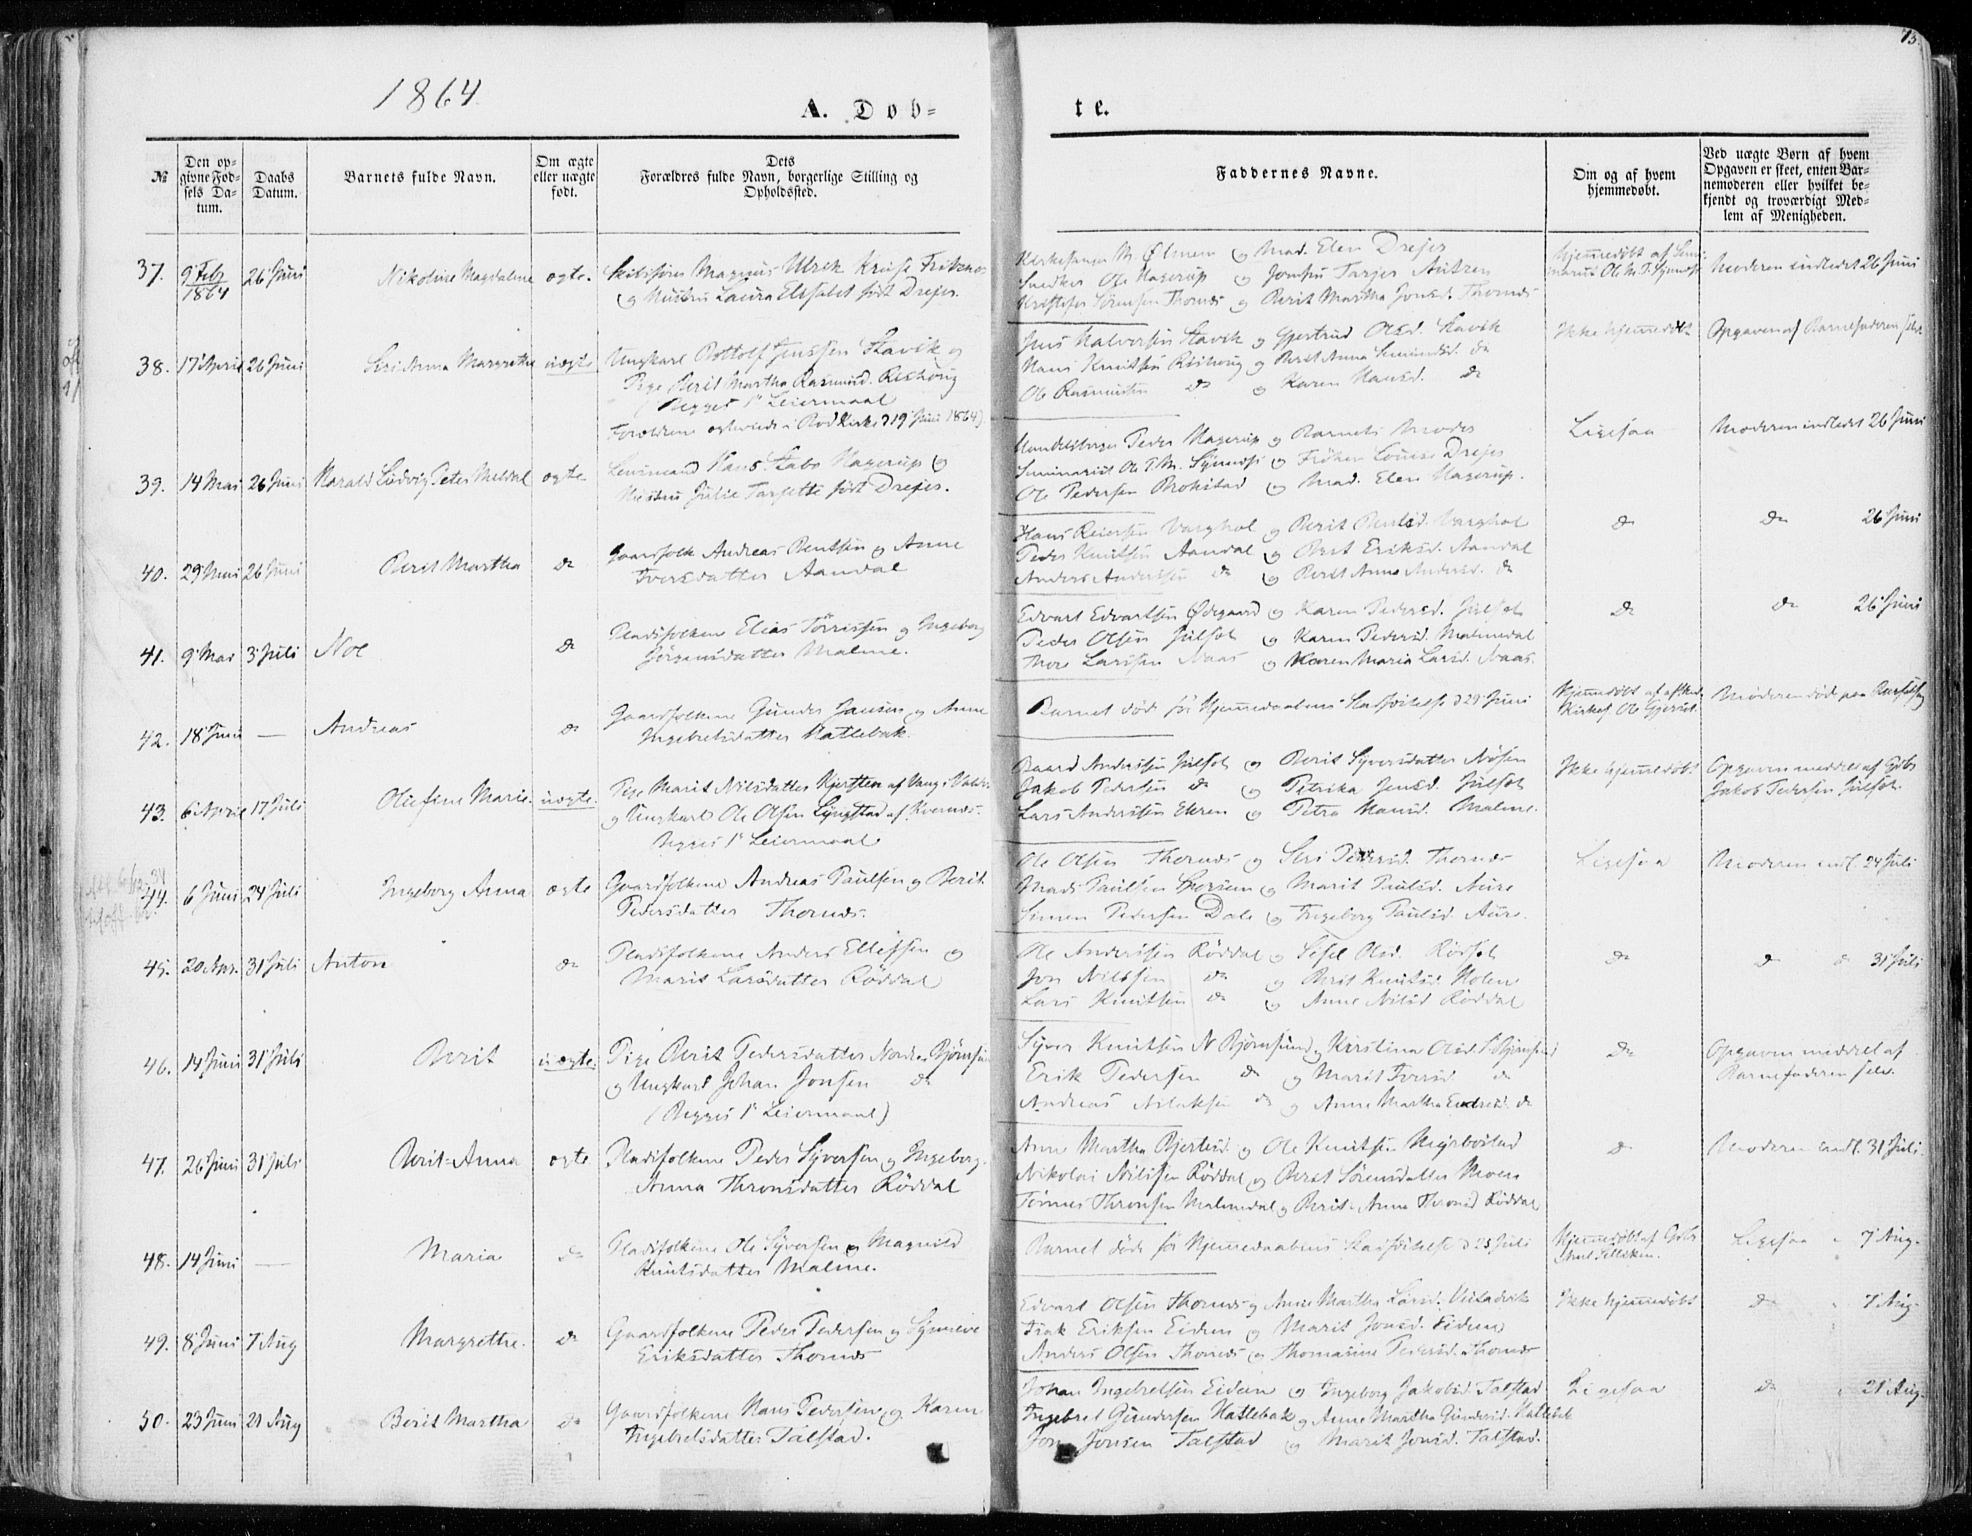 73.
1864
A. Døb=
te.
№
Den op=
givne Fød=
sels Da=
tum.
Daabs
Datum.
Barnets fulde Navn.
Om ægte
eller uægte
født.
Dets
Forældres fulde Navn, borgerlige Stilling og
Opholdssted.
Faddernes Navne.
Om og af hvem
hjemmedøbt.
Ved uægte Børn af hvem
Opgaven er skeet, enten Bar=
nemoderen eller hvilket be=
kjendt og troværdigt Med=
lem af Menigheden.
37. 9 Feb 1864 26 Juni Nikoline Magdalene ægte.
og Hustru Laura Elisabet født Drejer.
og Mad. Elen Drejer
Snedker Ole Hagerup og
Kristofer Sörensen Thornæs og Berit Martha Jonsd. Thornæs
Moderen indledet 26 Juni
38. 17 April 26 Juni Anna Margrethe uægte
Ungkarl Jenssen Stavik og
Pige Berit Martha Rasmusd. Rishoug
(Begges 1ste Leiermaal
19 Juni 1864)
Jens Halvorsen Stavik og Gjertrud Olsd. Stavik
Hans Knutsen Rishoug og Berit Anna do
Ole Rasmussen do og Karen Hansd. do
Ikke hjemmedøbt
Opgaven af Barnefaderen selv
39. 14 Mai 26 Juni Harald Ludvig Peter Meldal ægte
Lensmand Hans Stabo Hagerup og
Hustru Julie født Drejer.
Peder Hagerup og Barnets Moder
Seminarist og Frøken Louise Drejer
Ole Pedersen Brokstad og Mad. Elen Hagerup.
Ligesaa
Moderen indledet 26 Juni
40. 29 Mai 26 Juni Berit Martha do
Gaardfolk Andreas Bentsen og Anne
Iversdatter Aandal
Hans Reiersen Varghol og Berit Bentsd. Varghol
Peder Knutsen Aandal og Berit Eriksd. Aandal
Anders Anderssen do og Berit Anna Andersd. do
do
do 26 Juni
41. 9 Mai 3 Juli Noe do
Pladsfolkene Elias Tørrissen og Ingeborg
Jörgensdatter Malme.
Edvart Edvartsen Ødegaard og Karen Pedersd. Julset
Peder Olsen Julset og Karen Pedersd. Malmedal
Thor Larssen Naas og Karen Maria Larsd. Naas.
do
do 26 Juni
42. 18 Juni — Andreas do
Gaardfolkene Gunder Jansen og Anne
Ingebretsdatter Hatlebak.
Barnet död för Hjemmedaabens Stadfæstelse d 29 Juni
43. 6 April 17 Juli Olufine Marie uægte.
Pige Marit Nilsdatter
og Ungkarl Ole Olsen Lyngstad af Kvernæs.
Begges 1ste Leiermaal
Baard Anderssen Julset og Berit Syversdatter Nösen
Jakob Pedersen do og Petrika Jensd. Julset
Lars Anderssen Ekren og Petra Hansd. Malme.
Ikke hjemmedøbt
Opgaven meddelt af Gbr
Jakob Pedersen Julset.
44. 6 Juni 24 Juli Ingeborg Anna ægte
Gaardfolkene Andreas Paulsen og Berit
Pedersdatter Thornæs.
Ole Olsen Thornæs og Siri Pedersd. Thornæs
Mads Paulsen og Marit Paulsd. Aure
Simen Pedersen Dale og Ingeborg Paulsd. Aure.
Ligesaa
Moderen indl. 24 Juli
45. 20 Apr. 31 Juli Anton do
Pladsfolkene Anders Ellefsen og
Marit Larsdatter Röddal
Ole Anderssen Röddal og Sissel Olsd. Rødset
Jon Nilssen do og Berit Knutsd. Holen
Lars Knutsen do og Anne Nilsd Röddal
do
do do 31 Juli
46. 14 Juni 31 Juli Berit uægte.
Pige Berit Pedersdatter Nordre Bjørnsund
og Ungkarl Johan Jonsen do
(Begges 1ste Leiermaal)
Syver Knutsen N Bjørnsund og Kristina Olsd. S. Bjørnsund
Erik Pedersen do og Marit Iversd do
Andreas do og Anne Martha do
do
Opgaven meddelt af
Barnefaderen selv.
47. 26 Juni 31 Juli Berit-Anna ægte
Pladsfolkene Peder Syversen og Ingeborg-
Anna Thronsdatter Röddal
Anne Martha og Ole Knutsen
Nikolai Nilssen Röddal og Berit Sörensdatter Moen
Tönnes Thronsen Malmedal og Berit-Anna Thronsd Röddal
do
Moderen indl. 31 Juli
48. 14 Juni — Maria do
Pladsfolkene Ole Syversen og Magnild
Knutsdatter Malme.
Barnet döde för Hjemmedaabens Stadfæstelse d 25 Juli
Ligesaa 7 Aug.
49. 8 Juni 7 Aug Margrethe. do
Gaardfolkene Peder Pedersen og Synneve
Eriksdatter Thornæs
Edvart Olsen Thornæs og Anne Martha Larsd.
Isak Eriksen Eidem og Marit Jonsd. Eidem
Anders Olsen Thornæs og Thomasine Pedersd. Thornæs
Ikke hjemmedøbt
do 7 Aug.
50. 23 Juni 21 Aug Berit Martha do
Gaardfolkene Hans Pedersen og Karen
Ingebretsdatter Talstad.
Johan Ingebretsen Eidem og Ingeborg Jakobsd. Talstad
Ingebret Gundersen Hatlebak og Anne Martha Gundersd. Hatlebak
Jon Jonsen Talstad og Marit Jonsd. Talstad.
Ligesaa
do 21 Aug.